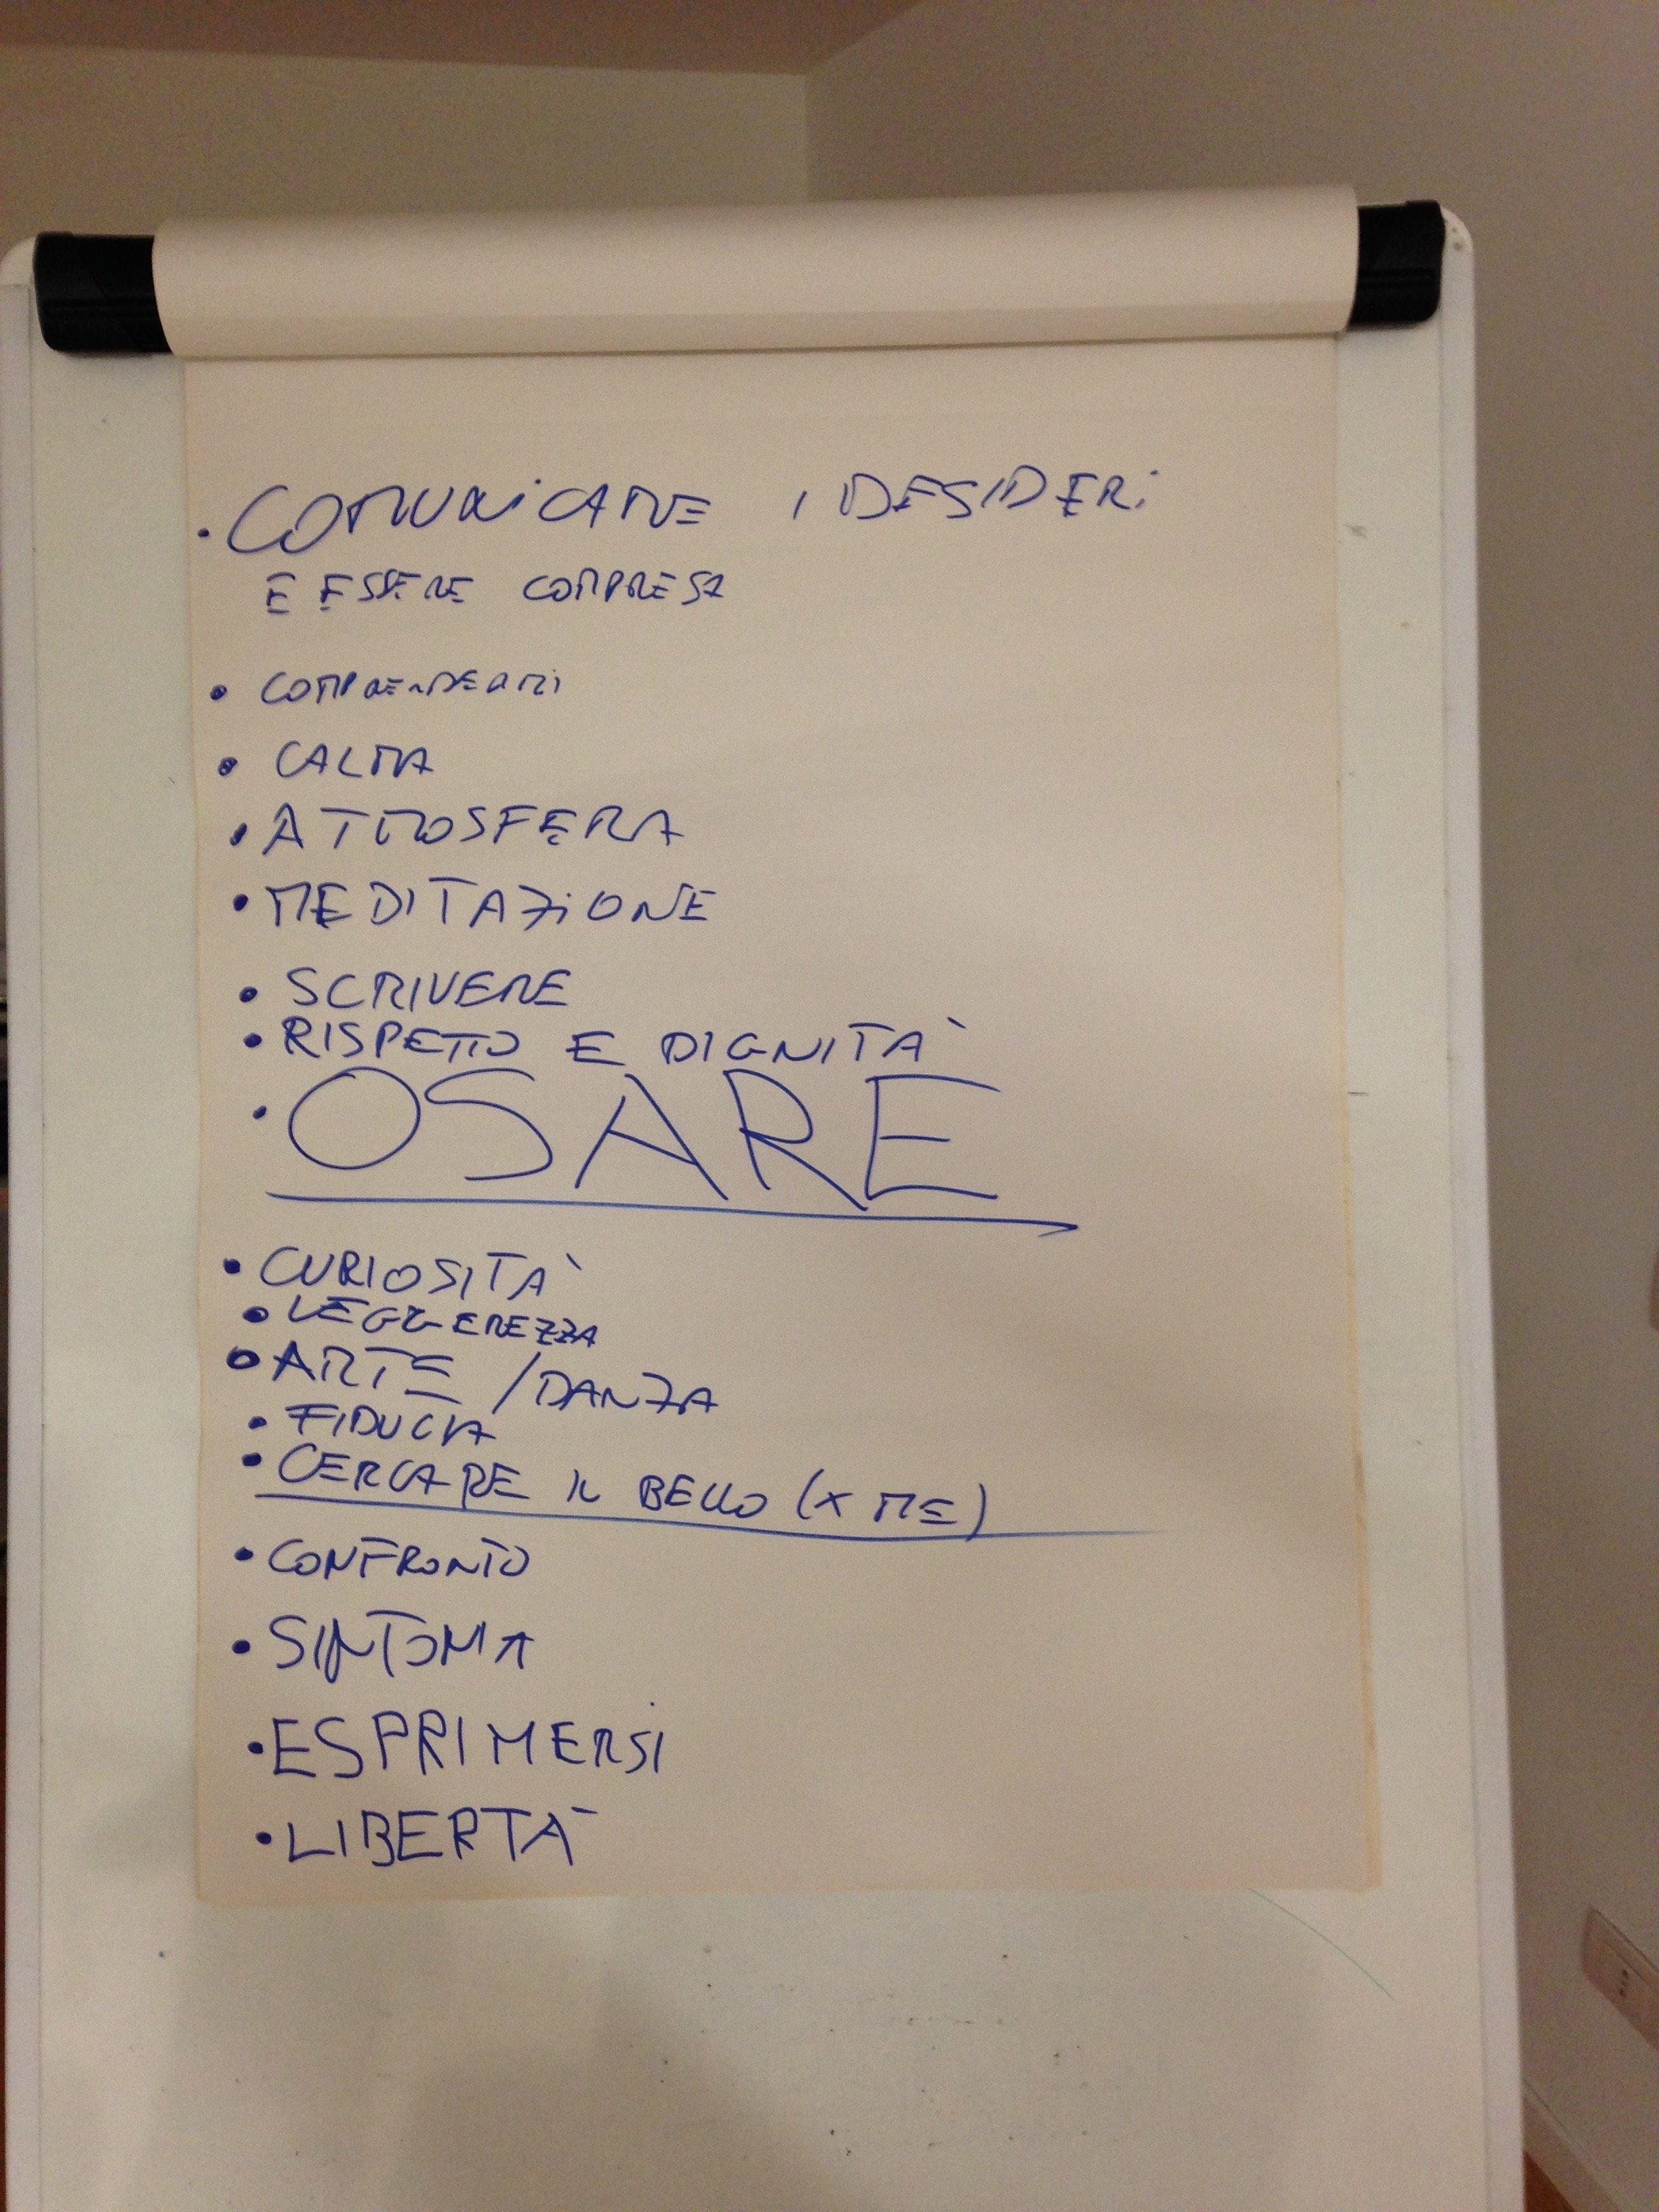 · COMUNICARE I DESIDERI
E ESSERE COMPRESA
· COMPRENDERMI
· CALMA
· ATMOSFERA
· MEDITAZIONE
· SCRIVERE
· RISPETTO E DIGNITÀ
· OSARE
· CURIOSITÀ
· LEGGEREZZA
· ARTE / DANZA
· FIDUCIA
· CERCARE IL BELLO (X ME)
· CONFRONTO
· SINTOMA
· ESPRIMERSI
· LIBERTÀ